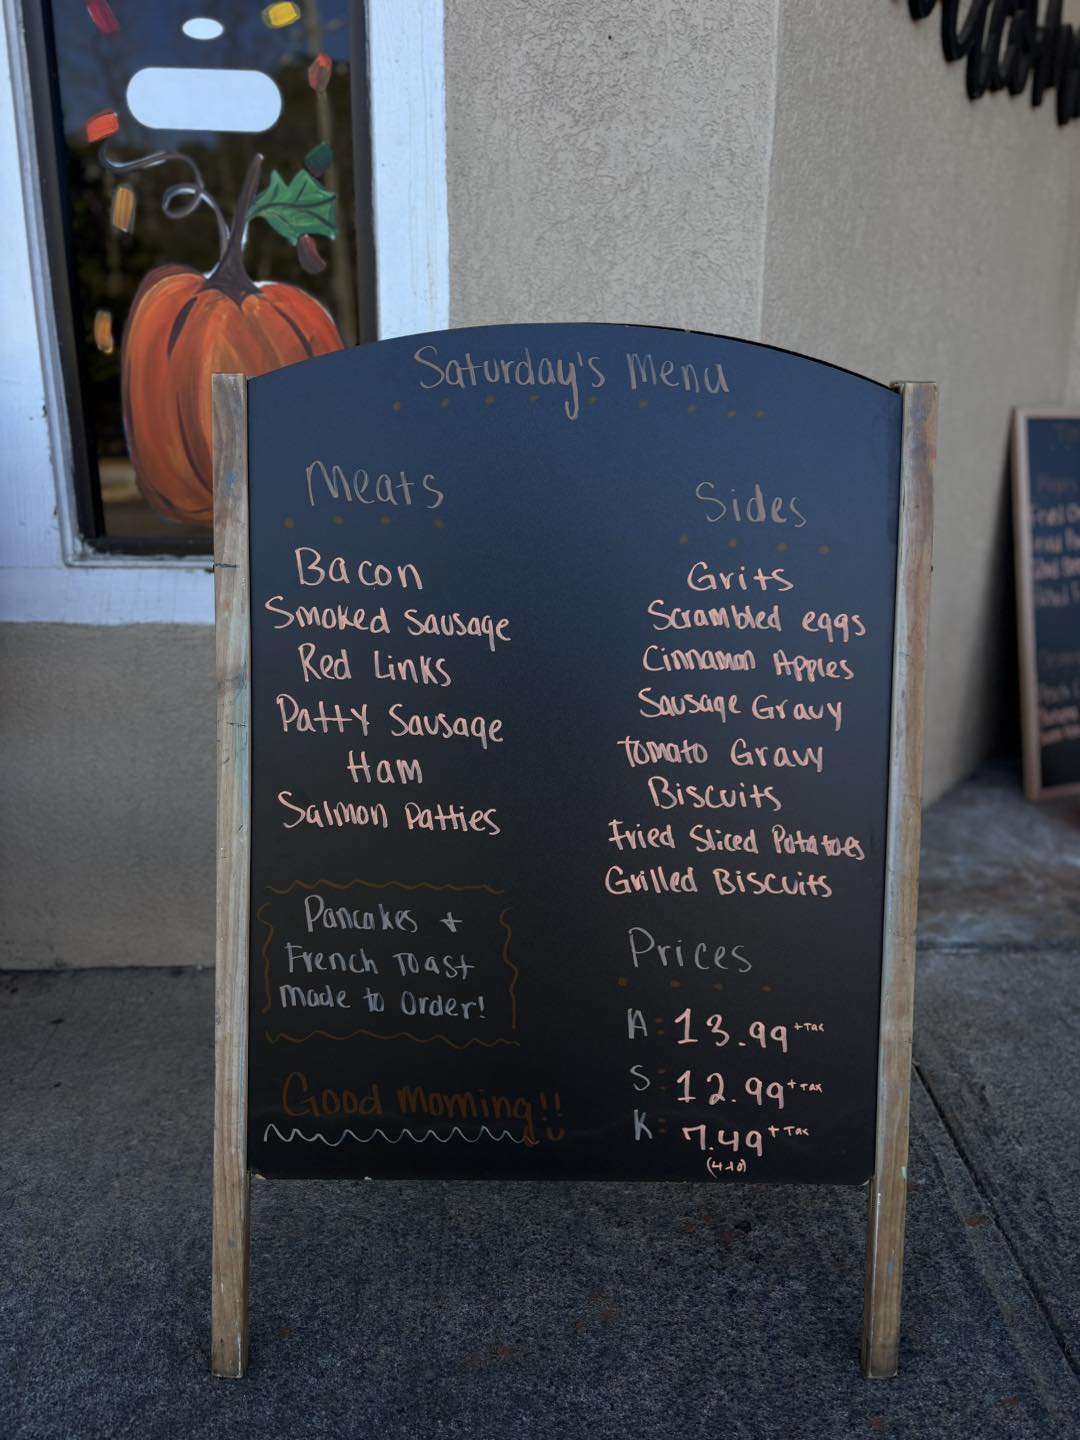 Saturday's Menu
Meats
Bacon
Smoked Sausage
Red Links
Patty Sausage
Ham
Salmon Patties
Pancakes +
French Toast
made to order!
Good morning!!
Sides
Grits
Scrambled eggs
Cinnamon Apples
Sausage Gravy
Tomato Gravy
Biscuits
Fried Sliced Potatoes
Grilled Biscuits
Prices
A: 13.99 + Tax
S: 12.99 + Tax
K: 7.49 + Tax
(4-10)